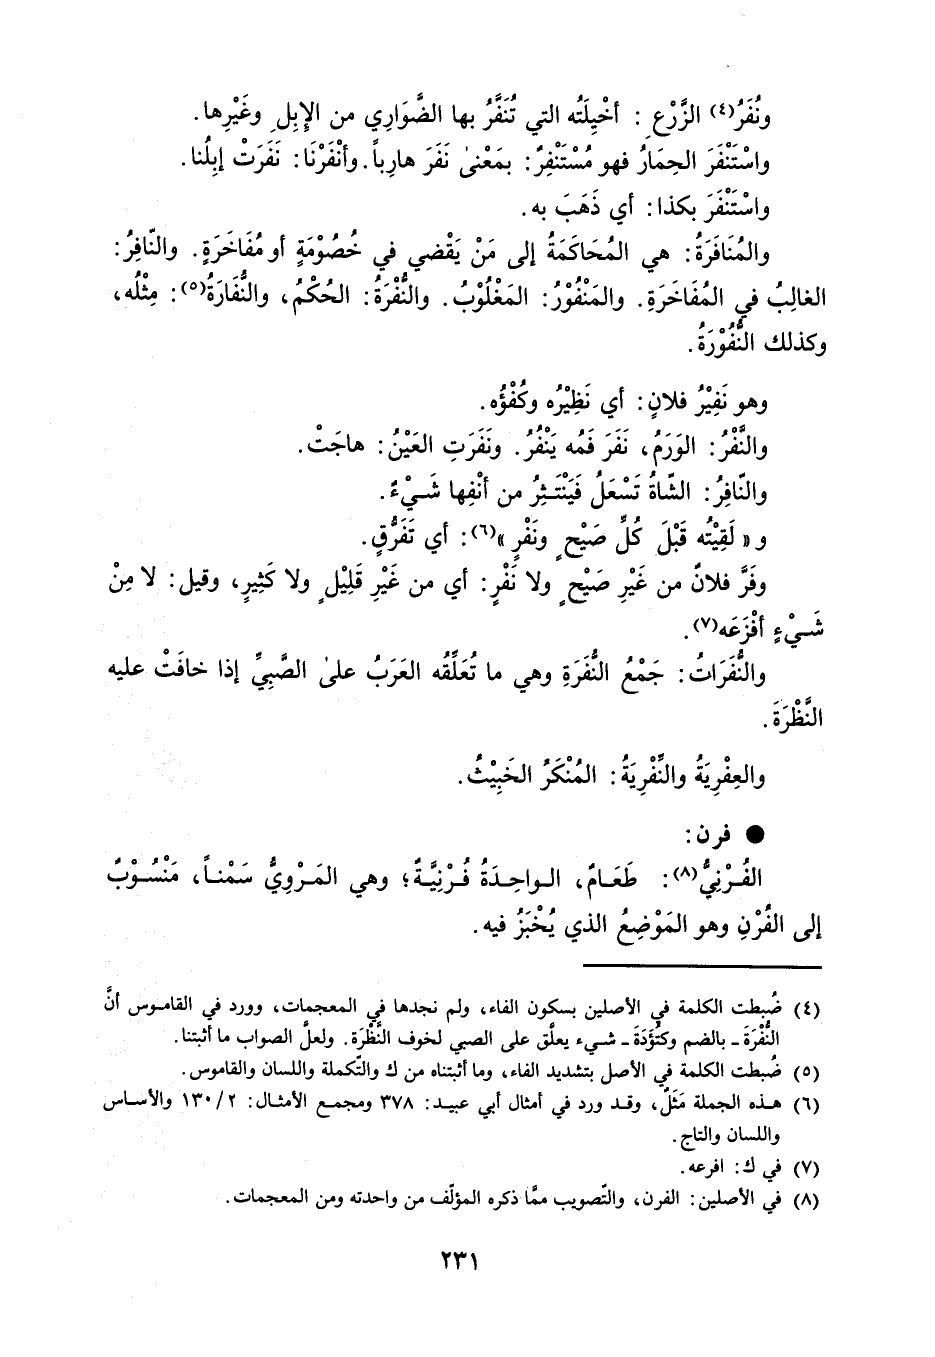 ونُفَرُ(٤) الزَّرْعِ : أخْيِلَتُه التي تُنَفَّرُ بها الضَّوَارِي من الإبِلِ وغَيْرِها.
واسْتَنْفَرَ الحِمَارُ فهو مُسْتَنْفِرٌ: بمَعْنىٰ نَفَرَ هارِباً. وأنْفَرْنَا: نَفَرَتْ إبِلُنا.
واسْتَنْفَرَ بكذا: أي ذَهَبَ به.
والمُنَافَرَةُ: هي المُحَاكَمَةُ إلى مَنْ يَقْضي في خُصُوْمَةٍ أو مُفَاخَرَةٍ. والنّافِرُ:
الغالِبُ في المُفَاخَرَةِ. والمَنْفُوْرُ: المَغْلُوْبُ. والنُّفْرَةُ: الحُكْمُ، والنُّفَارَةُ(٥): مِثْلُه،
وكذلك النُّفُوْرَةُ.
وهو نَفِيْرُ فلانٍ: أي نَظِيْرُه وكُفْؤُه.
والنَّفْرُ: الوَرَمُ، نَفَرَ فَمُه يَنْفُرُ. ونَفَرَتِ العَيْنُ: هاجَتْ.
والنّافِرُ: الشّاةُ تَسْعَلُ فَيَنْتَثِرُ من أنْفِها شَيْءٌ.
و« لَقِيْتُه قَبْلَ كُلِّ صَيْحٍ ونَفْرٍ »(٦): أي تَفَرُّقٍ.
وفَرَّ فلانٌ من غَيْرِ صَيْحٍ ولا نَفْرٍ: أي من غَيْرِ قَلِيْلٍ ولا كَثِيرٍ، وقيل: لا مِنْ
شَيْءٍ أفْزَعَه(٧).
والنُّفَرَاتُ: جَمْعُ النُّفَرَةِ وهي ما تُعَلِّقُه العَرَبُ علىٰ الصَّبِيِّ إذا خافَتْ عليه
النَّظْرَةَ.
والعِفْرِيَةُ والنِّفْرِيَةُ: المُنْكَرُ الخَبِيْثُ.
● فرن:
الفُرْنِيُّ(٨): طَعَامٌ، الواحِدَةُ فُرْنِيَّةٌ؛ وهي المَرْوِيُّ سَمْناً، مَنْسُوْبٌ
إلى الفُرْنِ وهو المَوْضِعُ الذي يُخْبَزُ فيه.
(٤) ضُبطت الكلمة في الأصلين بسكون الفاء، ولم نجدها في المعجمات، وورد في القاموس أنَّ
النُّفْرَةَ ـ بالضم وكتُؤَدَةَ ـ شيء يعلَّق على الصبي لخوف النَّظْرَة. ولعلَّ الصواب ما أثبتنا.
(٥) ضُبطت الكلمة في الأصل بتشديد الفاء، وما أثبتناه من ك والتّكملة واللسان والقاموس.
(٦) هذه الجملة مَثَلٌ، وقد ورد في أمثال أبي عبيد: ٣٧٨ ومجمع الأمثال: ٢/ ١٣٠ والأساس
واللسان والتاج.
(٧) في ك: افرعه.
(٨) في الأصلين: الفرن، والتّصويب ممَّا ذكره المؤلّف من واحدته ومن المعجمات.
٢٣١